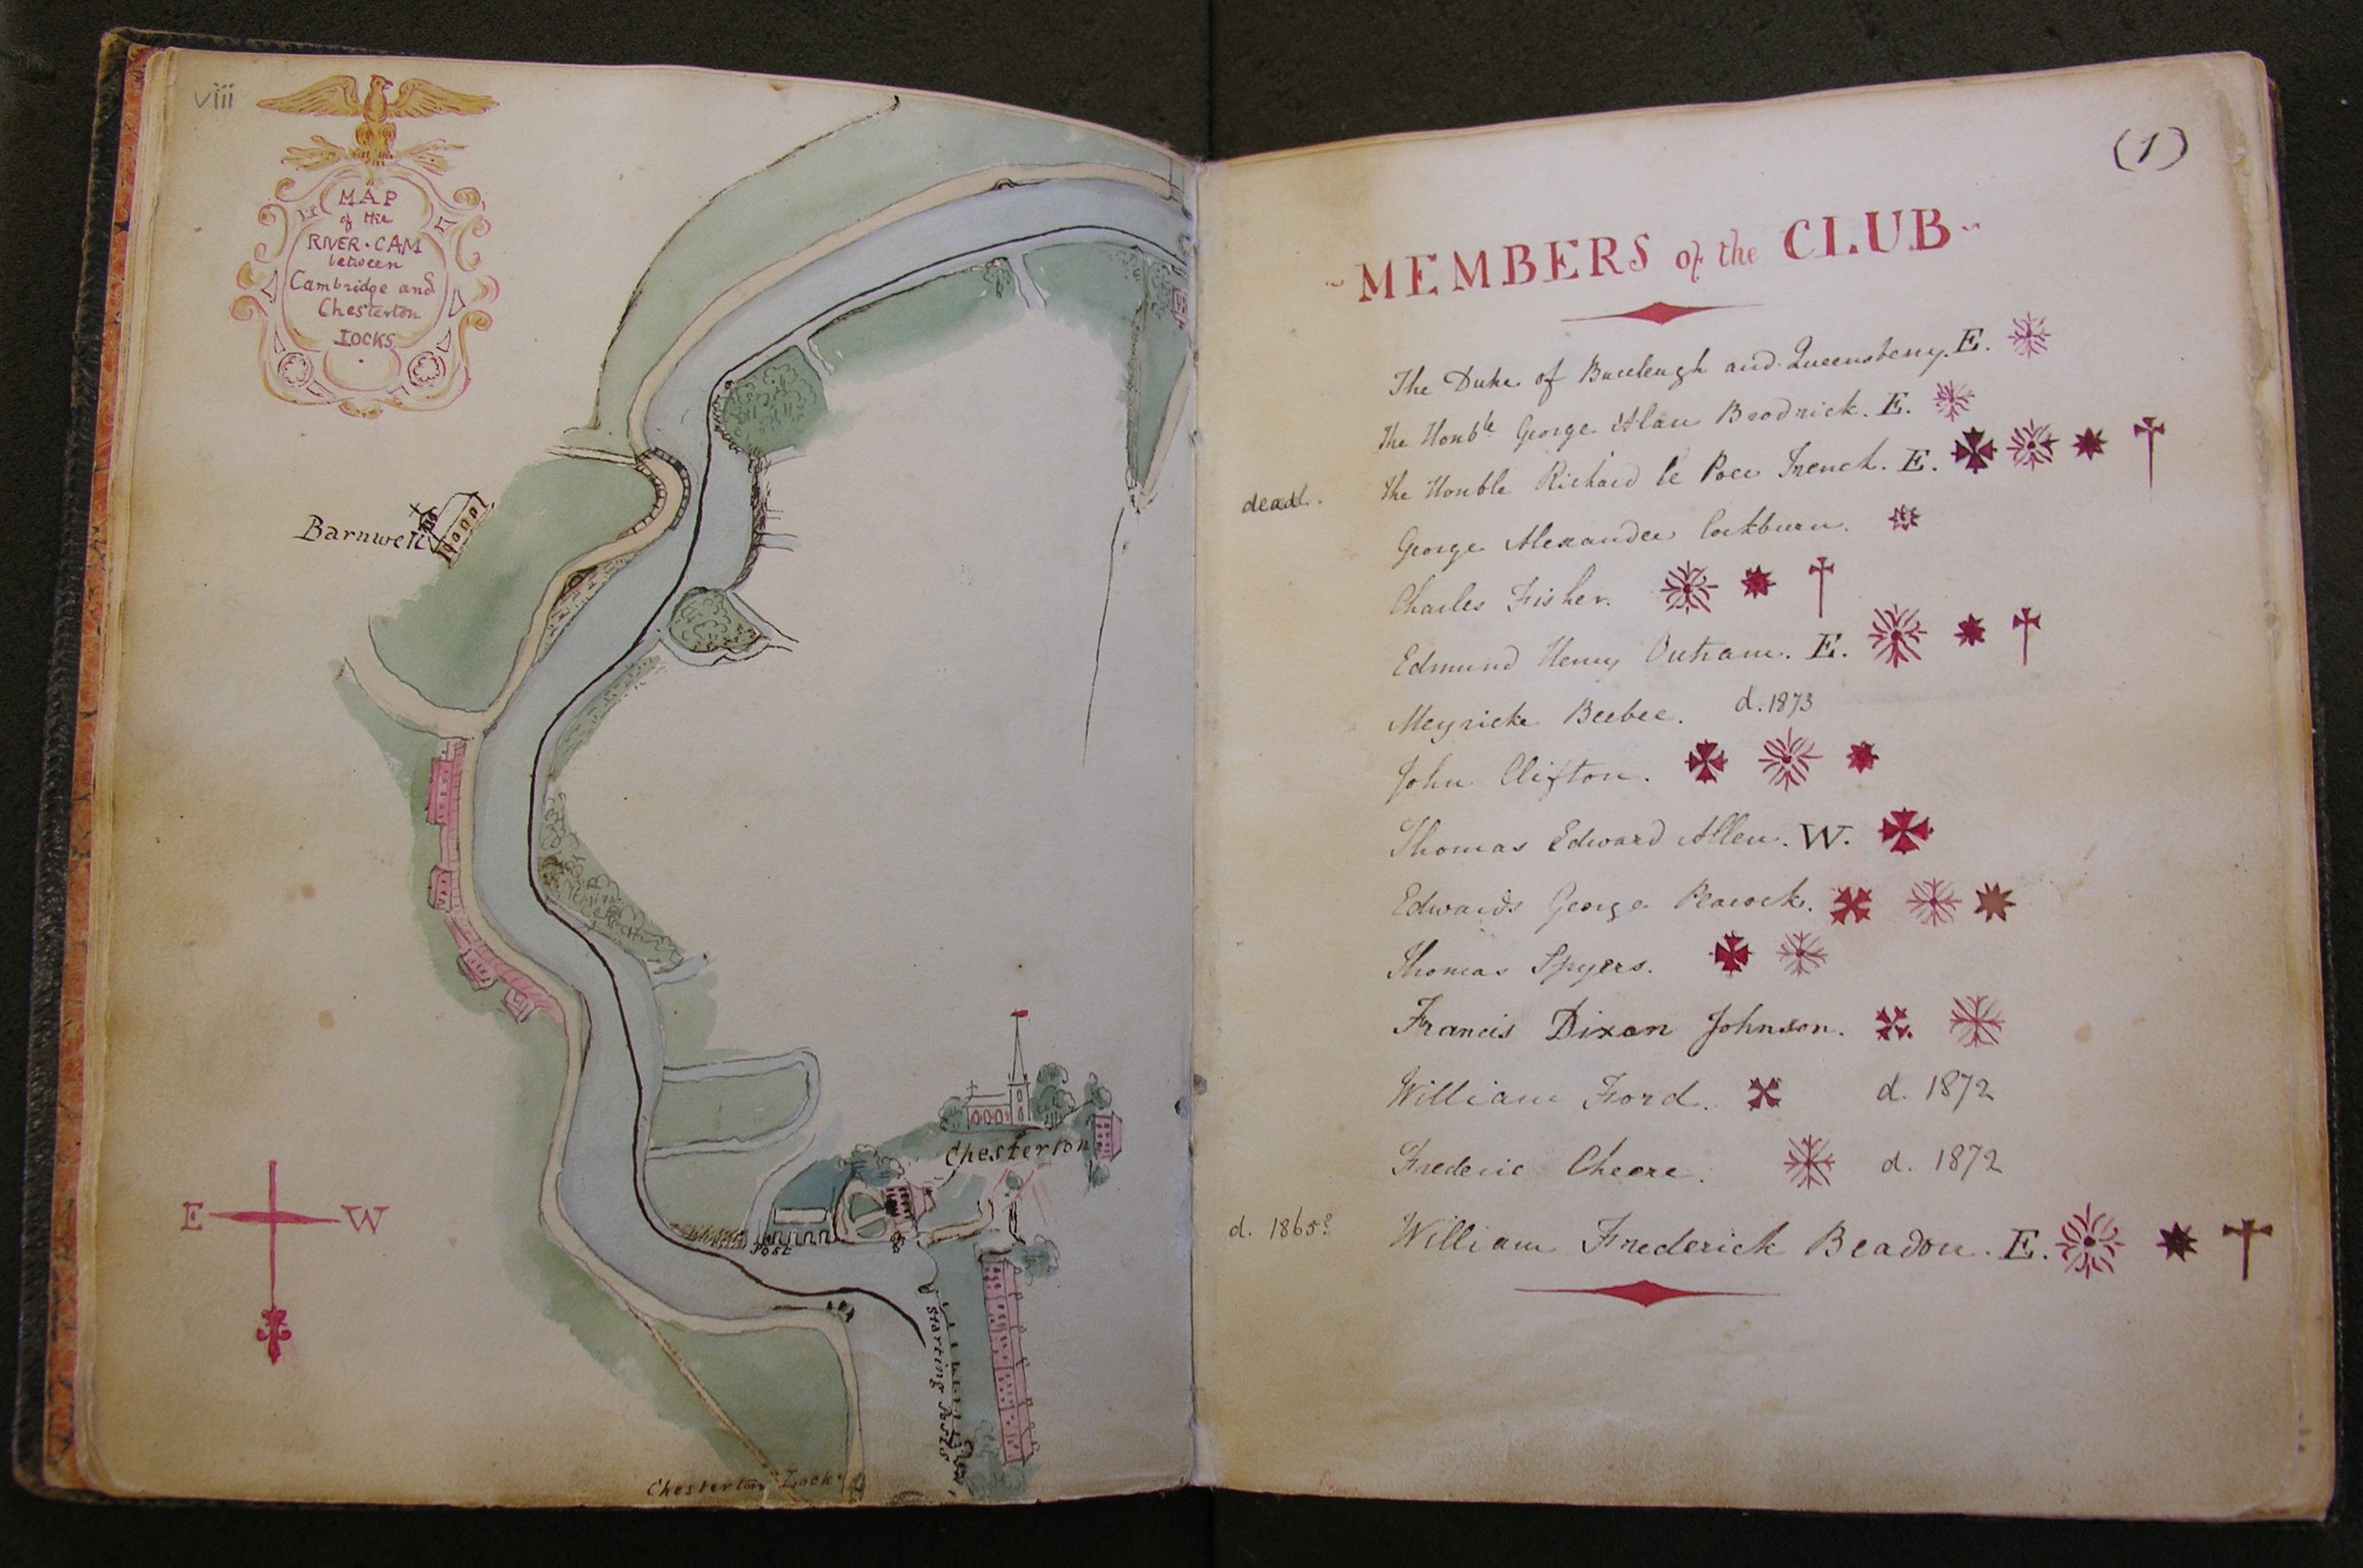 viii
MAP
of the
RIVER · CAM
between
Cambridge and
Chesterton
LOCKS
Barnwell
E W
Chesterton
Post
Starting Posts
Chesterton Lock
(1)
MEMBERS of the CLUB
The Duke of Buccleugh and Queensberry. E.
The Honble George Alan Brodrick. E.
dead. The Honble Richard le Poer Trench. E.
George Alexander Cockburn.
Charles Fisher.
Edmund Henry Outram. E.
Meyricke Beebee. d. 1873
John Clifton.
Thomas Edward Allen. W.
Edwards George Peacock.
Thomas Spyers.
Francis Dixon Johnson.
William Ford. d. 1872
Frederic Cheere. d. 1872
d. 1865? William Frederick Beadon. E.